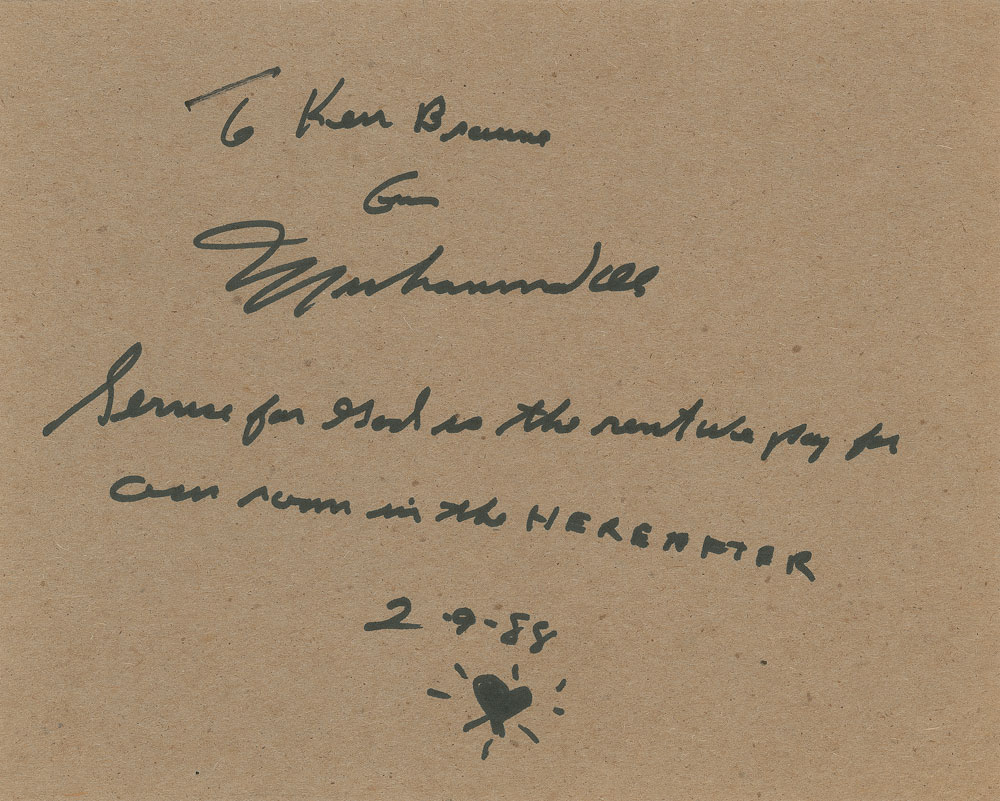 To Ken Browne
From
Muhammad Ali
Service for God is the rent we pay for
our room in the HEREAFTER
2-9-88